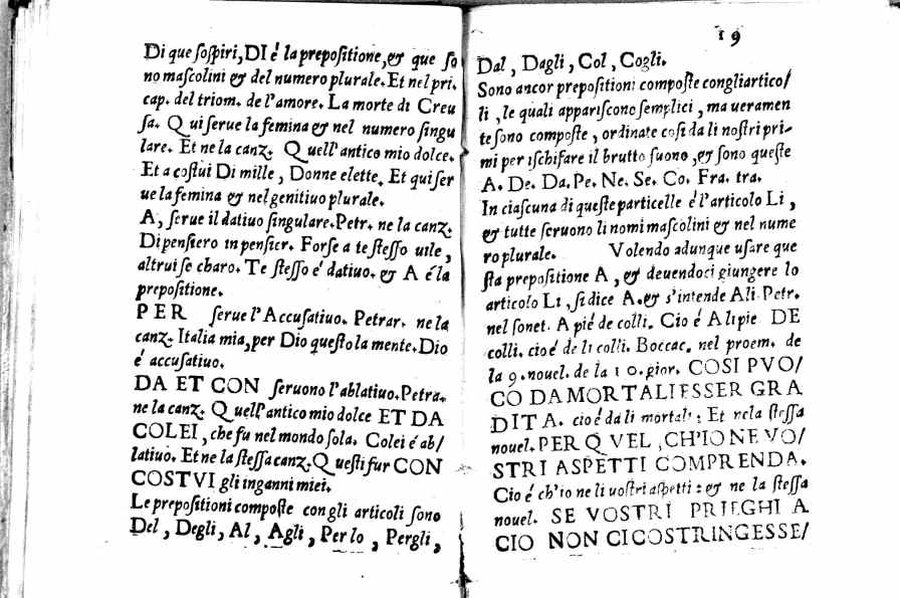 Di que ſoſpiri, DI é la prepoſitione, & que ſo
no maſcolini & del numero plurale. Et nel pri.
cap. del triom. de l'amore. La morte di Creu
ſa. Qui ſerue la femina & nel numero ſingu
lare. Et ne la canz. Quell'antico mio dolce.
Et a coſtui Di mille, Donne elette. Et qui ſer
ue la femina & nel genitiuo plurale.
A, ſerue il datiuo ſingulare. Petr. ne la canz.
Di penſiero in penſier. Forſe a te ſteſſo uile,
altrui ſe charo. Te ſteſſo é datiuo. & A é la
prepoſitione.
PER ſerue l'Accuſatiuo. Petrar. ne la
canz. Italia mia, per Dio queſto la mente. Dio
é accuſatiuo.
DA ET CON ſeruono l'ablatiuo. Petra.
ne la canz. Quell'antico mio dolce ET DA
COLEI, che fu nel mondo ſola. Colei é ab/
latiuo. Et ne la ſteſſa canz. Queſti fur CON
COSTVI gli inganni miei.
Le prepoſitioni compoſte con gli articoli ſono
Del, Degli, Al, Agli, Per lo, Pergli,
19
Dal, Dagli, Col, Cogli.
Sono ancor prepoſitioni compoſte con gli artico/
li, le quali appariſcono ſemplici, ma ueramen
te ſono compoſte, ordinate coſi da li noſtri pri-
mi per iſchifare il brutto ſuono, & ſono queſte
A. De. Da. Pe. Ne. Se. Co. Fra. tra.
In ciaſcuna di queſte particelle é l'articolo Li,
& tutte ſeruono li nomi maſcolini & nel nume
ro plurale. Volendo adunque uſare que
ſta prepoſitione A, & deuendoci giungere lo
articolo Li, ſi dice A. & s'intende Ali. Petr.
nel ſonet. A pié de colli. Cio é Ali pie DE
colli. cio é de li colli. Boccac. nel proem. de
la 9. nouel. de la 10. gior. COSI PVO/
CO DA MORTALI ESSER GRA
DITA. cio é da li mortali: Et ne la ſteſſa
nouel. PER QVEL, CH'IO NE VO/
STRI ASPETTI COMPRENDA.
Cio é ch'io ne li uoſtri aſpetti: & ne la ſteſſa
nouel. SE VOSTRI PRIEGHI A
CIO NON CI COSTRINGESSE/